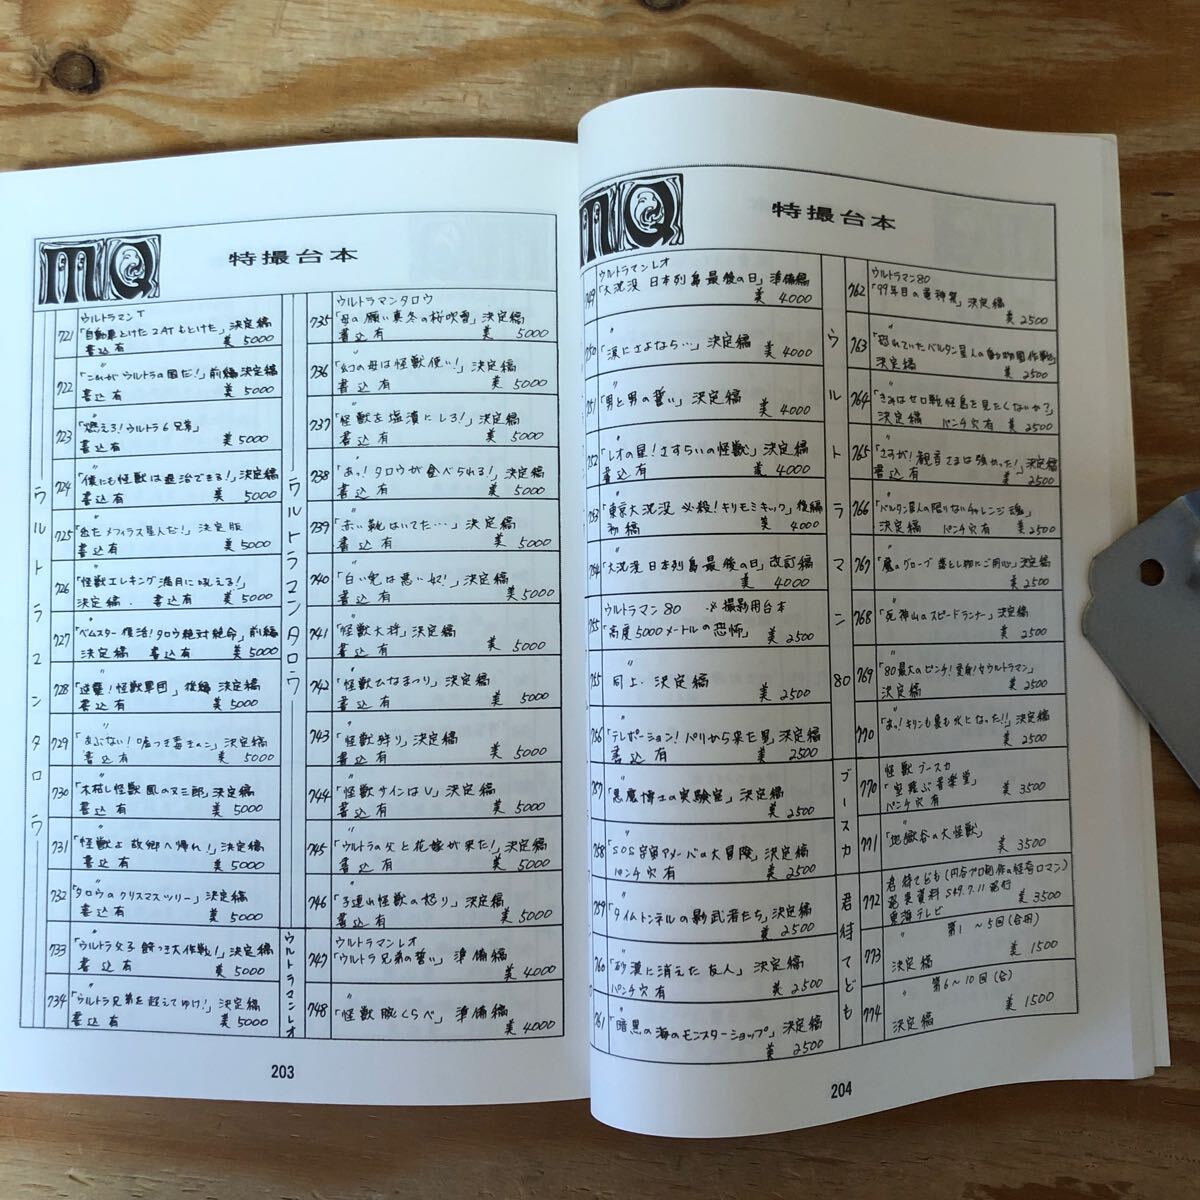 MQ
特撮台本
ウルトラマンタロウ
721
ウルトラマンT
「自動車とけた ZATもとけた」決定稿
書込有 美 5000
722
〃
「これがウルトラの国だ!」前編 決定稿
書込有 美 5000
723
〃
「燃えろ!ウルトラ6兄弟」
書込有 美 5000
724
〃
「僕にも怪獣は退治できる!」決定稿
書込有 美 5000
725
〃
「出たメフィラス星人だ!」決定版
書込有 美 5000
726
〃
「怪獣エレキング満月に吠える!」
決定稿. 書込有 美 5000
727
〃
「ベムスター復活!タロウ絶対絶命」前編
決定稿 書込有 美 5000
728
〃
「逆襲!怪獣軍団」後編 決定稿
書込有 美 5000
729
〃
「あぶない!嘘つき毒きのこ」決定稿
書込有 美 5000
730
〃
「木枯し怪獣 風の又三郎」決定稿
書込有 美 5000
731
〃
「怪獣よ故郷へ帰れ!」決定稿
書込有 美 5000
732
〃
「タロウのクリスマスツリー」決定稿
書込有 美 5000
733
〃
「ウルトラ父子餅つき大作戦!」決定稿
書込有 美 5000
734
〃
「ウルトラ兄弟を超えてゆけ!」決定稿
書込有 美 5000
ウルトラマンタロウ
735
ウルトラマンタロウ
「母の願い真冬の桜吹雪」決定稿
書込有 美 5000
736
〃
「幻の母は怪獣使い!」決定稿
書込有 美 5000
737
〃
「怪獣を塩漬にしろ!」決定稿
書込有 美 5000
738
〃
「あっ!タロウが食べられる!」決定稿
書込有 美 5000
739
〃
「赤い靴はいてた…」決定稿
書込有 美 5000
740
〃
「白い兎は悪い奴!」決定稿
書込有 美 5000
741
〃
「怪獣大将」決定稿
書込有 美 5000
742
〃
「怪獣ひなまつり」決定稿
書込有 美 5000
743
〃
「怪獣狩り」決定稿
書込有 美 5000
744
〃
「怪獣サインはV」決定稿
書込有 美 5000
745
〃
「ウルトラの父と花嫁が来た!」決定稿
書込有 美 5000
746
〃
「子連れ怪獣の怒り」決定稿
書込有 美 5000
ウルトラマンレオ
747
ウルトラマンレオ
「ウルトラ兄弟の誓い」準備稿
美 4000
748
〃
「怪獣腕くらべ」準備稿
美 4000
203
MQ
特撮台本
749
ウルトラマンレオ
「大沈没 日本列島最後の日」準備稿
美 4000
750
〃
「涙にさよなら…」決定稿
美 4000
751
〃
「男と男の誓い」決定稿
美 4000
752
〃
「レオの星!さすらいの怪獣」決定稿
書込有 美 4000
753
〃
「東京大沈没 必殺!キリモミキック」後編
初稿 美 4000
754
〃
「大沈没 日本列島最後の日」改訂稿
美 4000
755
ウルトラマン80 ※撮影用台本
「高度5000メートルの恐怖」
美 2500
755
〃
同上. 決定稿
美 2500
756
〃
「テレポーション!パリから来た男」決定稿
書込有 美 2500
757
〃
「悪魔博士の実験室」決定稿
美 2500
758
〃
「SOS宇宙アメーバの大冒険」決定稿
パンチ穴有 美 2500
759
〃
「タイムトンネルの影武者たち」決定稿
美 2500
760
〃
「砂漠に消えた友人」決定稿
パンチ穴有 美 2500
761
〃
「暗黒の海のモンスターショップ」決定稿
美 2500
ウルトラマン80
762
ウルトラマン80
「99年目の竜神祭」決定稿
美 2500
763
〃
「恐れていたバルタン星人の動物園作戦」
決定稿 美 2500
764
〃
「きみはゼロ戦怪鳥を見たくないか?」
決定稿 パンチ穴有 美 2500
765
〃
「さすが!観音さまは強かった!」決定稿
書込有 美 2500
766
〃
「バルタン星人の限りないチャレンジ魂」
決定稿 パンチ穴有 美 2500
767
〃
「魔のグローブ 落とし物にご用心」決定稿
美 2500
768
〃
「死神山のスピードランナー」決定稿
美 2500
769
〃
「80最大のピンチ!変身!女ウルトラマン」
決定稿 美 2500
770
〃
「あっ!キリンも象も氷になった!!」決定稿
美 2500
ブースカ
770
怪獣ブースカ
「空飛ぶ音楽堂」
パンチ穴有 美 3500
771
〃
「地獄谷の大怪獣」
美 3500
君待てども
772
君待てども(円谷プロ制作の怪奇ロマン)
美 3500
東海テレビ
773
〃 第1~5回(合冊)
決定稿 美 1500
774
〃 第6~10回(合)
決定稿 美 1500
204